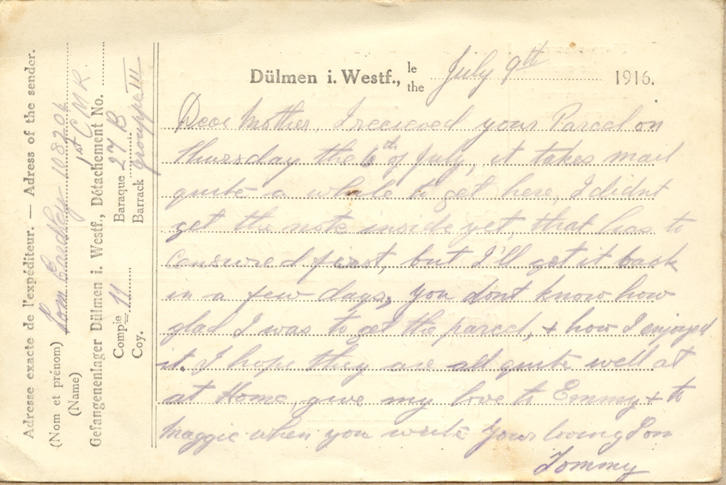 Dülmen i. Westf., le
the July 9th 1916.
Dear Mother, I recieved your Parcel on
thursday the 6th of July, it takes mail
quite a while to get here, I didnt
get the note inside yet, that has to
censured first, but I'll get it back
in a few days, you dont know how
glad I was to get the parcel, & how I enjoyed
it. I hope they are all quite well at
at Home, give my love to Emmy & to
Maggie when you write Your loving Son
Tommy
Adresse exacte de l'expéditeur. — Adress of the sender.
(Nom et prénom) Tom 108206
(Name) 1st C.M.R.
Gefangenenlager Dülmen i. Westf., Détachement No.
Compie 11 Baraque 27 B
Coy. Barrack groupe III